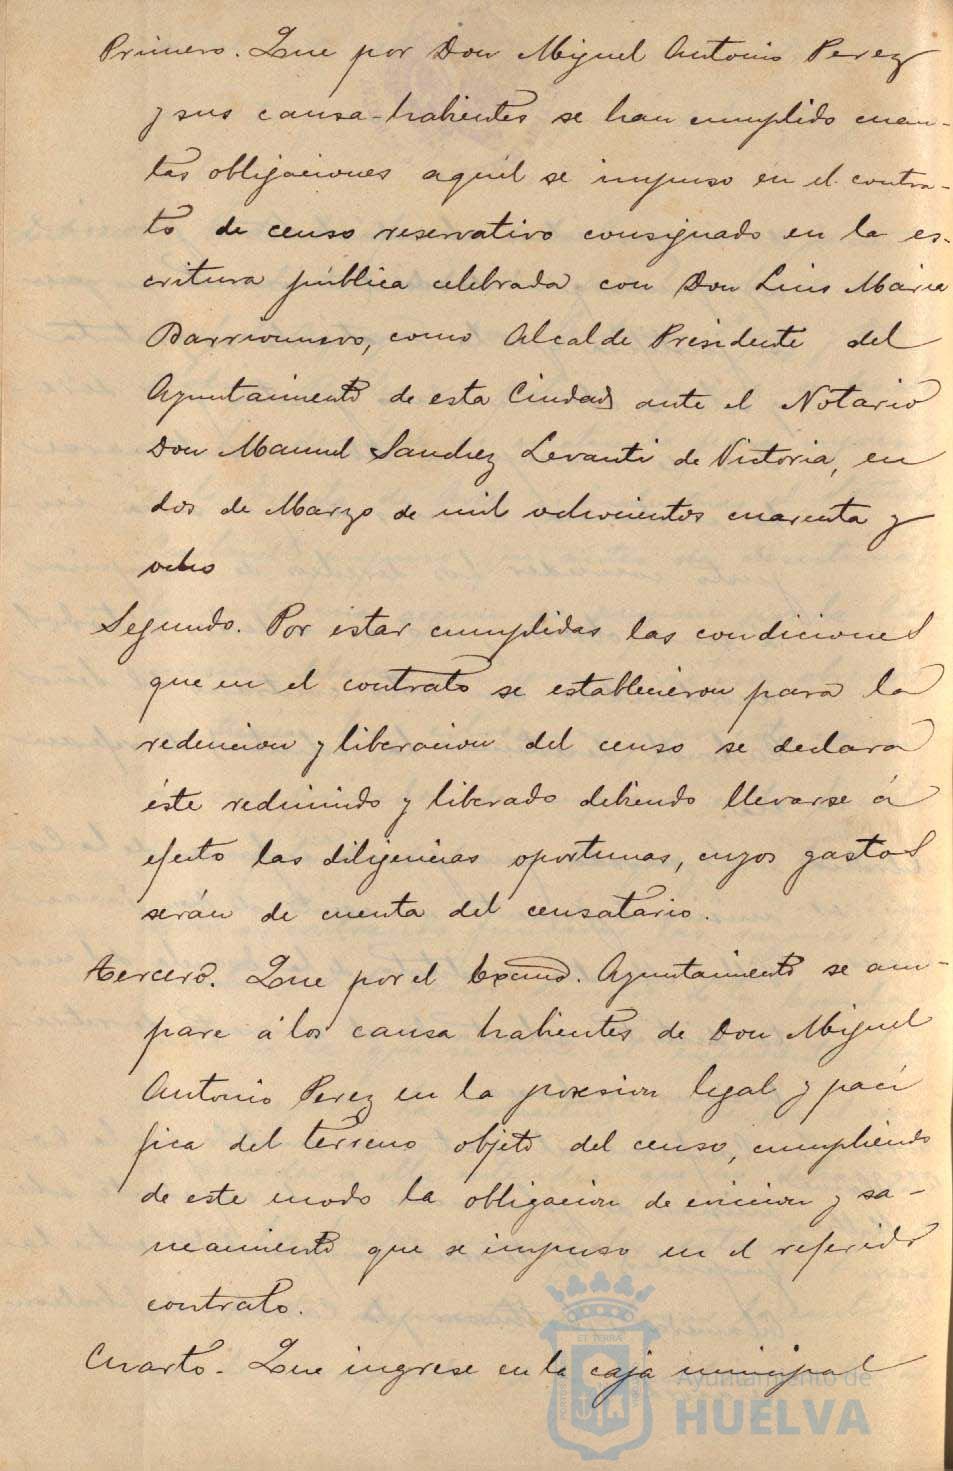 Primero. Que por Don Miguel Antonio Perez
y sus causa-habientes se han cumplido cuan-
tas obligaciones aquél se impuso en el contra-
to de censo reservativo consignado en la es-
critura pública celebrada con Don Luis Maria
Barrionuevo, como Alcalde Presidente del
Ayuntamiento de esta Ciudad ante el Notario
Don Manuel Sanchez Levanti de Victoria, en
dos de Marzo de mil ochocientos cuarenta y
ocho
Segundo. Por estar cumplidas las condiciones
que en el contrato se establecieron para la
redencion y liberacion del censo se declara
éste redimido y liberado debiendo llevarse á
efecto las diligencias oportunas, cuyos gastos
serán de cuenta del censatario.
tercero. Que por el Excmo. Ayuntamiento se am-
pare á los causa habientes de Don Miguel
Antonio Perez en la posesion legal y paci
fica del terreno objeto del censo, cumpliendo
de este modo la obligacion de eviccion y sa-
neamiento que se impuso en el referido
contrato.
Cuarto. Que ingrese en la caja municipal
ET TERRA
Ayuntamiento de
HUELVA